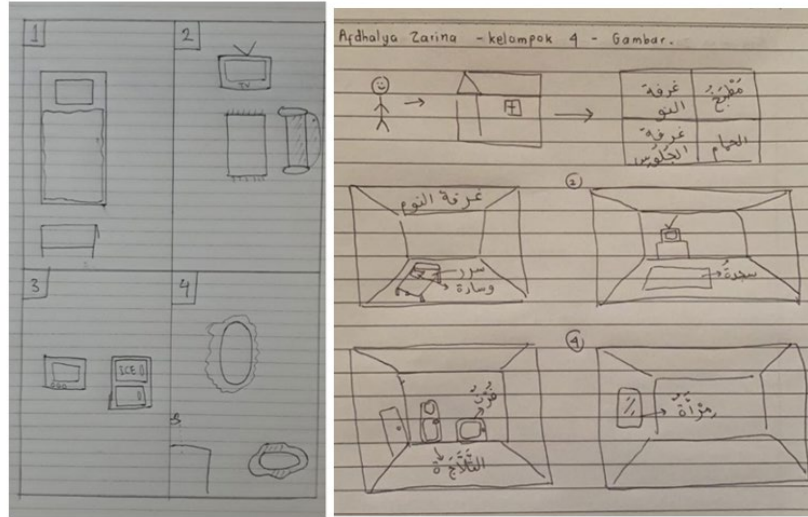 1
2
TV
3
4
ICE
Ardhalya Zarina - kelompok 4 - Gambar.
غرفة النو
مَطْبَخٌ
غرفة الجُلُوْسِ
الحمام
②
غرفة النوم
سرر
وسادة
سجدةُ
④
فُرْنٌ
الثَّلَّاجَةُ
مِرْآةٌ